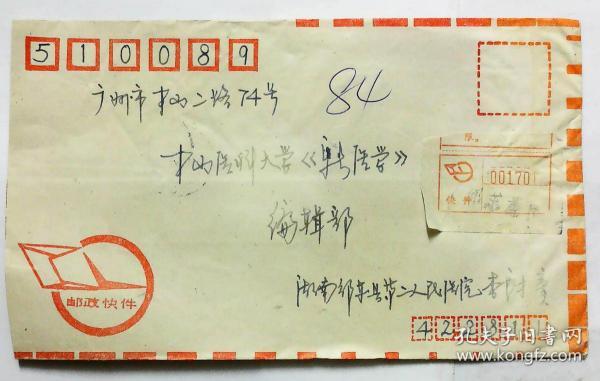 510089
广州市中山二路74号
84
中山医科大学《新医学》
编辑部
湖南邵东县第二人民医院 李
邮政快件
限
001701
快件
42281
孔夫子旧书网
www.kongfz.com